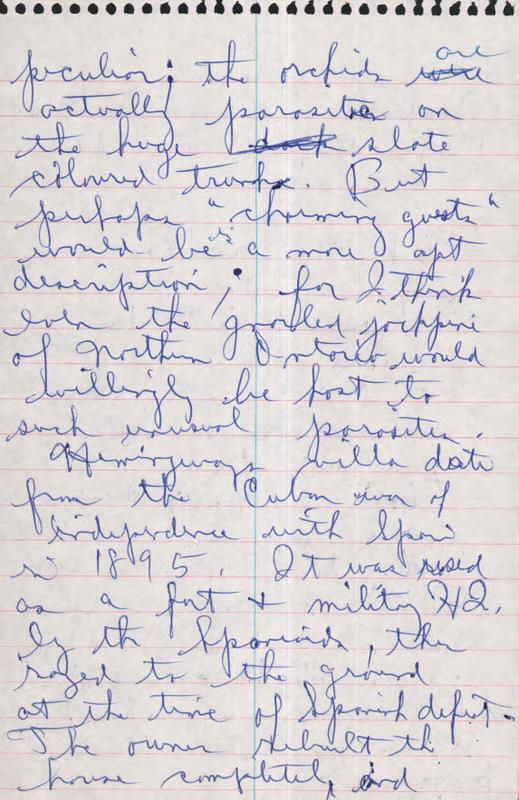 are
peculiar; the orchids were
actually parasites on
the huge dark slate
coloured trunks. But
perhaps "charming guests"
would be a more apt
description; for I think
even the gnarled jackpine
of Northern Ontario would
willingly be host to
such unusual parasites.
Hemingways villa date
from the Cuban war of
independence with Spain
in 1895. It was used
as a fort & military HQ.
by the Spaniards, then
razed to the ground
at the time of Spanish defeat.
The owner rebuilt the
house completely, and